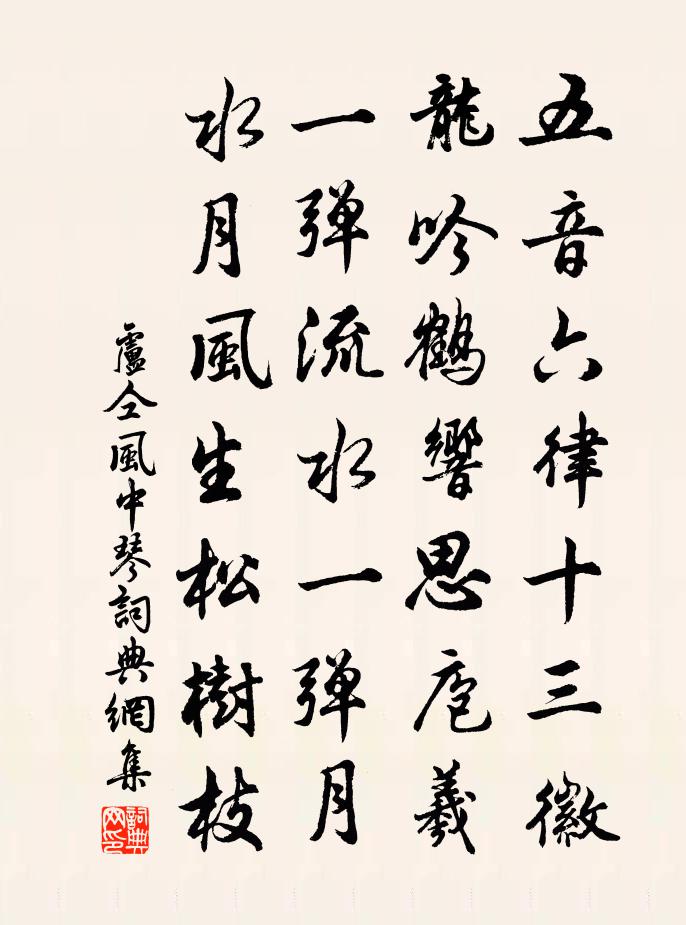 五音六律十三徽
龍吟鶴響思庖羲
一弹流水一弹月
水月風生松樹枝
盧仝風中琴詞典網集
詞典網印